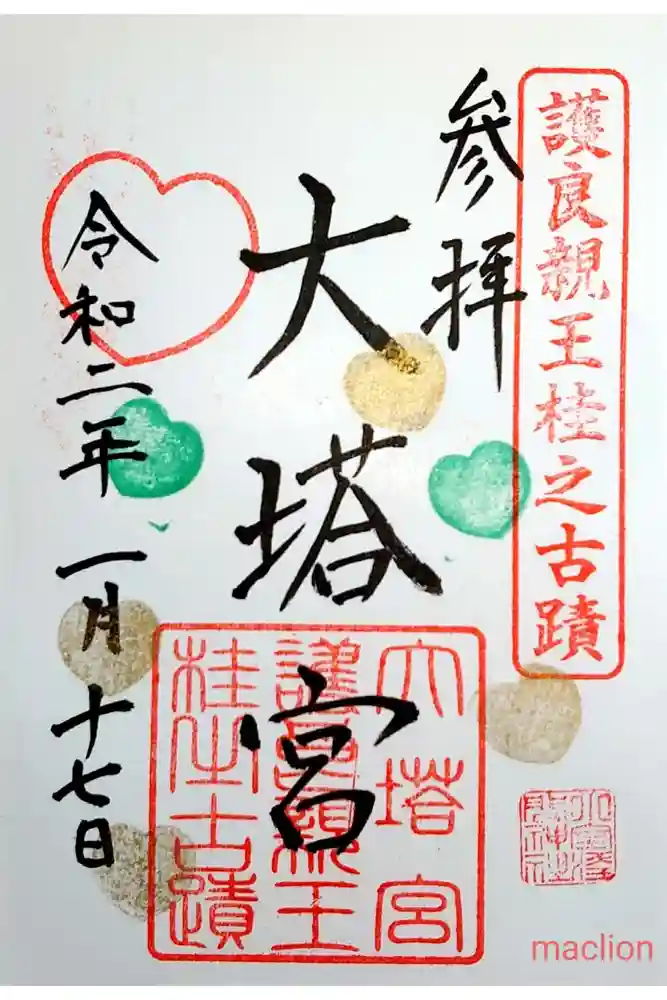 護良親王桂之古蹟
参拝
大塔宮
令和二年一月十七日
大塔宮
護良親王
桂之古蹟
maclion